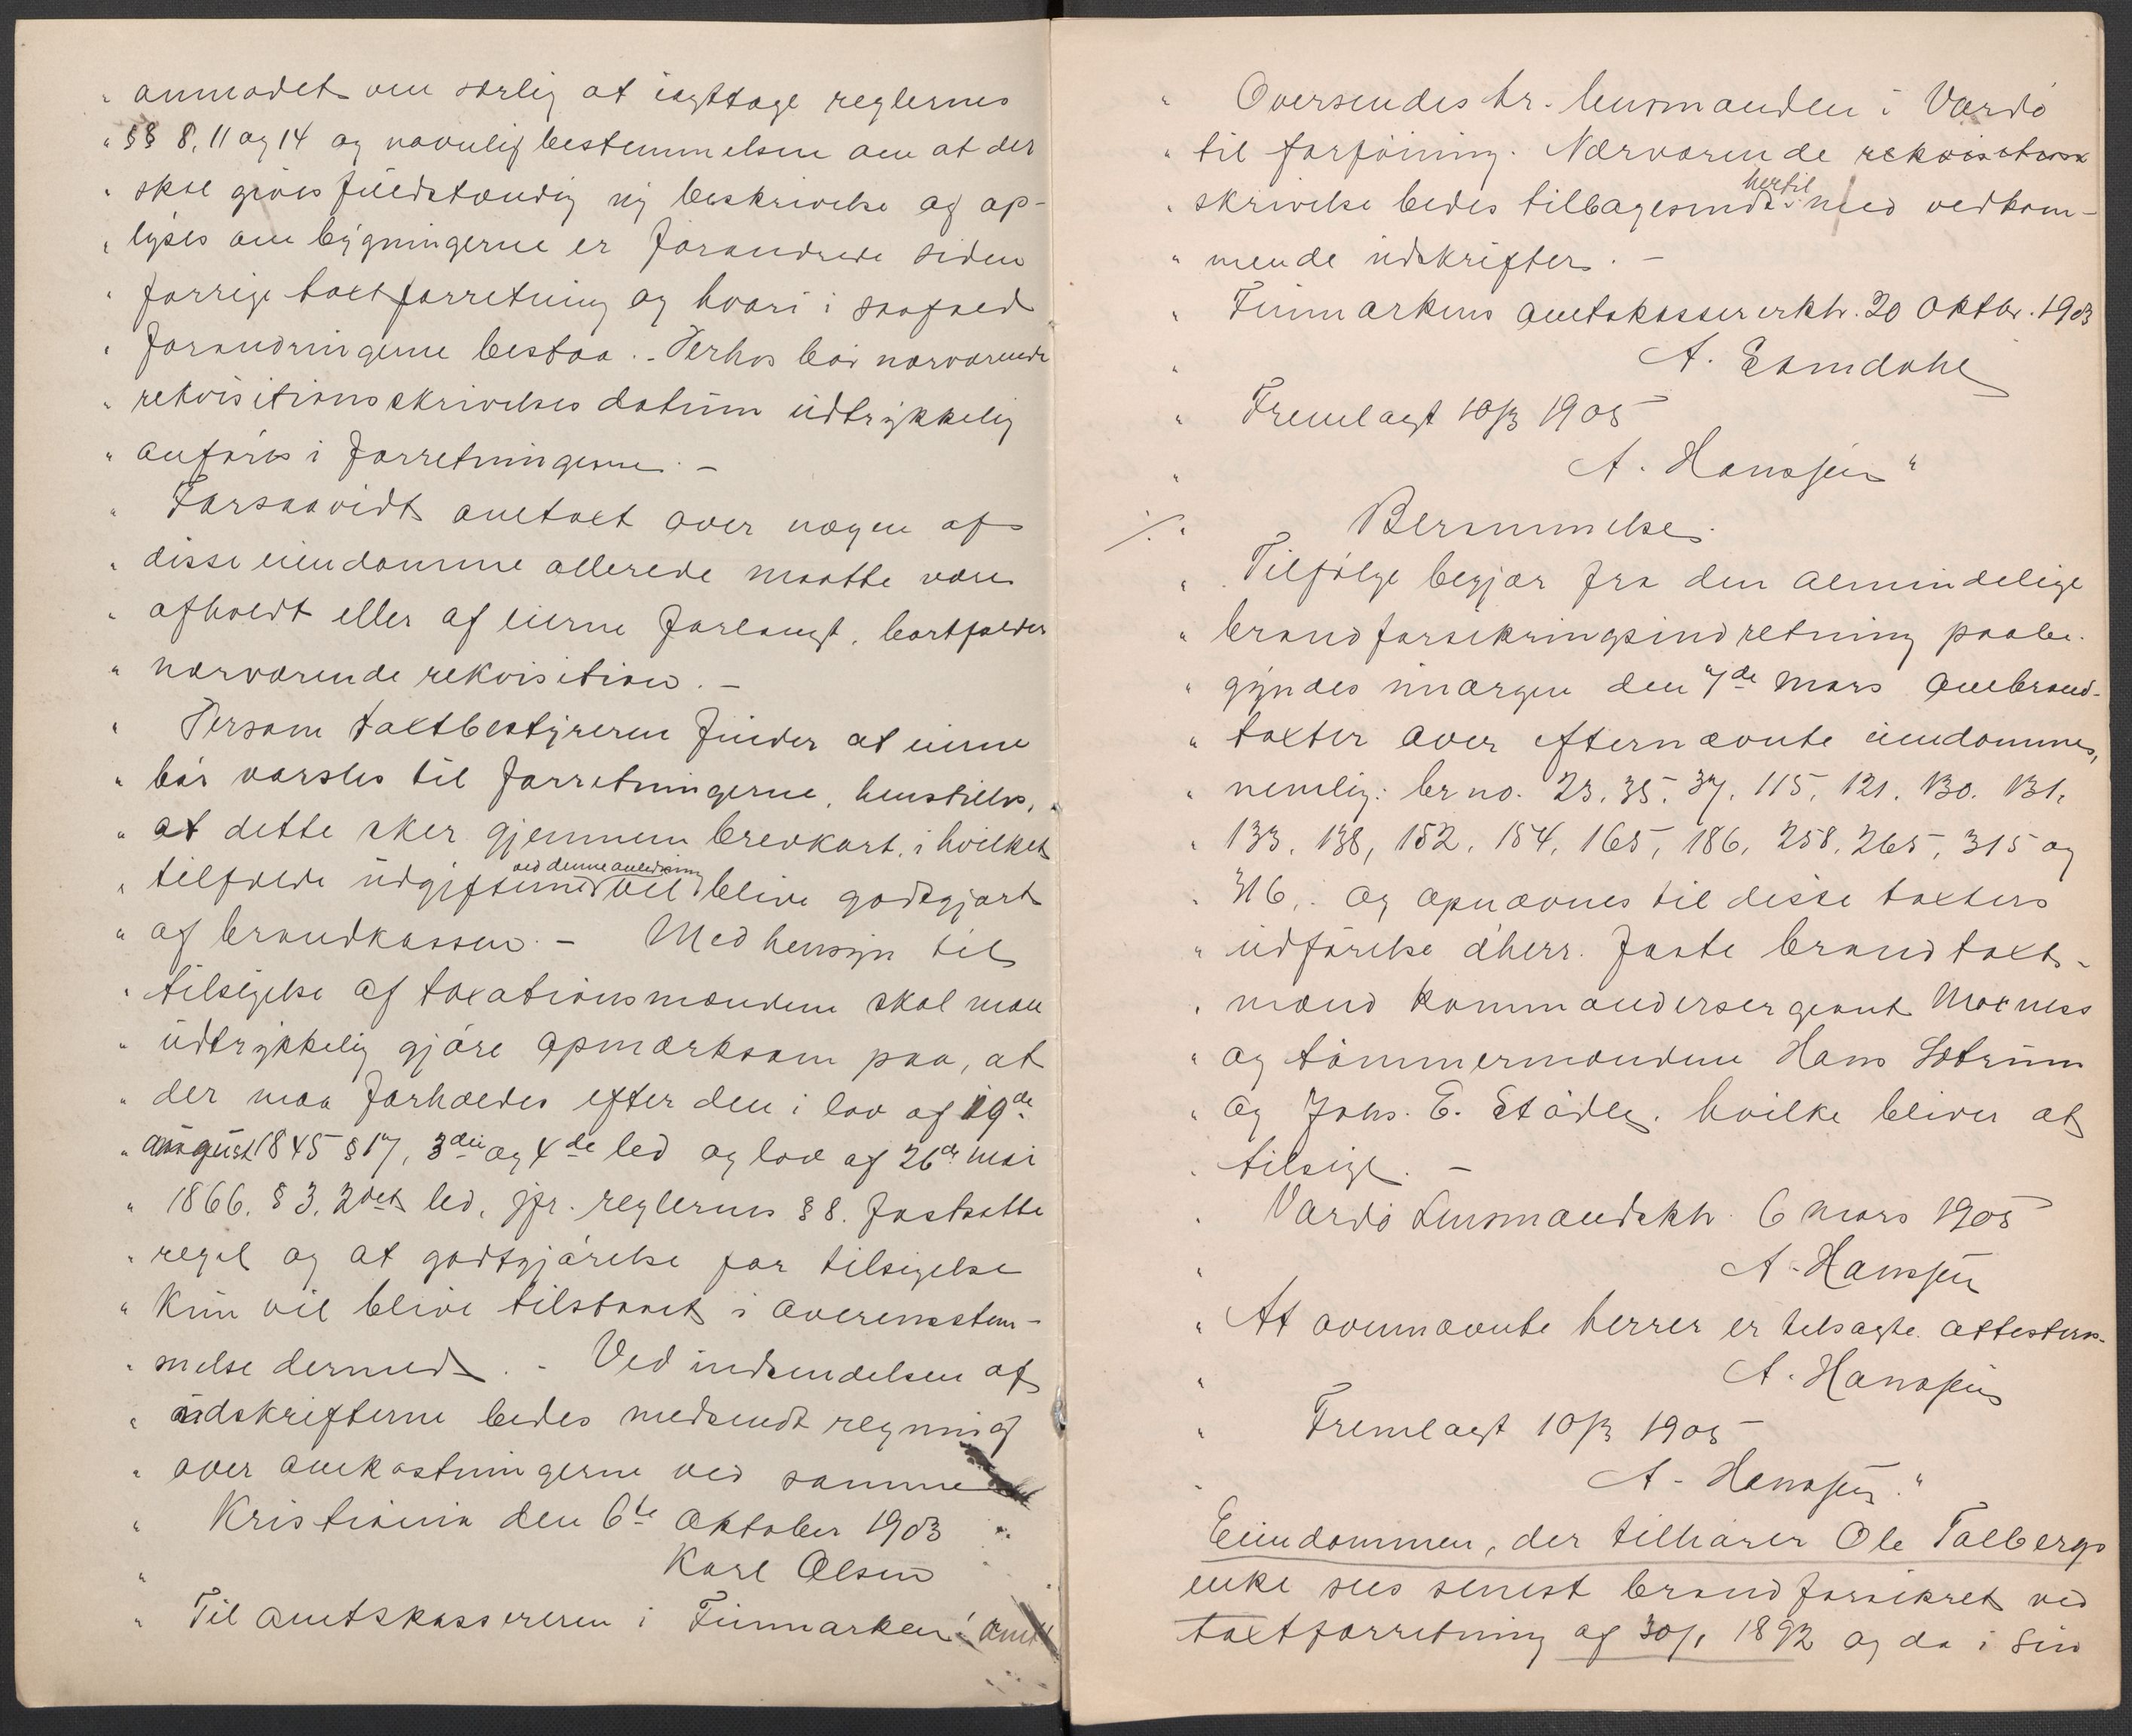 " anmodet om særlig at iagttage reglernes
" §§ 8, 11 og 14 og navnlig bestemmelsen om at der
" skal gives fuldstændig ny beskrivelse og op-
" lyses om bygningerne er forandrede siden
" forrige taxtforretning og hvori i saafald
" forandringerne bestaa. - Derhos bør nærværende
" rekvisitionsskrivelses datum udtrykkelig
" anføres i forretningerne. -
" Forsaavidt omtaxt over nogen af
" disse eiendomme allerede maatte være
" afholdt eller af eierne forlangt, bortfalder
" nærværende rekvisition. -
" Dersom taxtbestyreren finder at eierne
" bør varsles til forretningerne, henstilles,
" at dette sker gjennem brevkort, i hvilket
ved denne anledning
" tilfælde udgifterne vil blive godtgjort
" af brandkassen. - Med hensyn til
" tilsigelse af taxationsmændene skal man
" udtrykkelig gjøre opmærksom paa, at
" der maa forholdes efter den i lov af 19de
" august 1845 § 17, 3die og 4de led og lov af 26de mai
" 1866, § 3, 2det led, jfr. reglernes § 8. fastsatte
" regel og at godtgjørelse for tilsigelse
" kun vil blive tilstaaet i overensstem-
" melse dermed. - Ved indsendelsen af
" udskrifterne bedes medsendt regning
" over omkostningerne ved samme
" Kristiania den 6te Oktober 1903
" Karl Olsen
" Til amtskassereren i Finmarken! amt
" Oversendes hr. lensmanden i Vardø
" til forføining. Nærværende rekvisitions
hertil
" skrivelse bedes tilbagesendt med vedkom-
" mende udskrifter. -
" Finmarkens amtskassererktr. 20 Oktbr. 1903
" A. Esmdahl
" Fremlagt 10/3 1905
" A. Hanssen "
./. " Berammelse.
" Tilfølge begjær fra den almindelige
" brandforsikringsindretning paabe-
" gyndes imorgen den 7de mars ombrand-
" taxter over efternævnte eiendomme,
" nemlig: br no. 23, 35, 37, 115, 121, 130, 131,
" 133, 138, 152, 154, 165, 186, 258, 265, 315 og
" 316,. og opnævnes til disse taxters
" udførelse d'herr. faste brandtaxt-
" mænd kommandersergeant Moxness
" og tømmermændene Hans Sotrum
" og Johs. E. Stødle, hvilke bliver at
" tilsige. -
" Vardø Lensmandsktr. 6 mars 1905
" A. Hanssen
" At ovennævnte herrer er tilsagte attesteres.
" A. Hanssen
" Fremlagt 10/3 1905
" A. Hanssen. "
Eiendommen, der tilhører Ole Talbergs
enke sees senest brandforsikret ved
taxtforretning af 30/1 1892 og da i sin